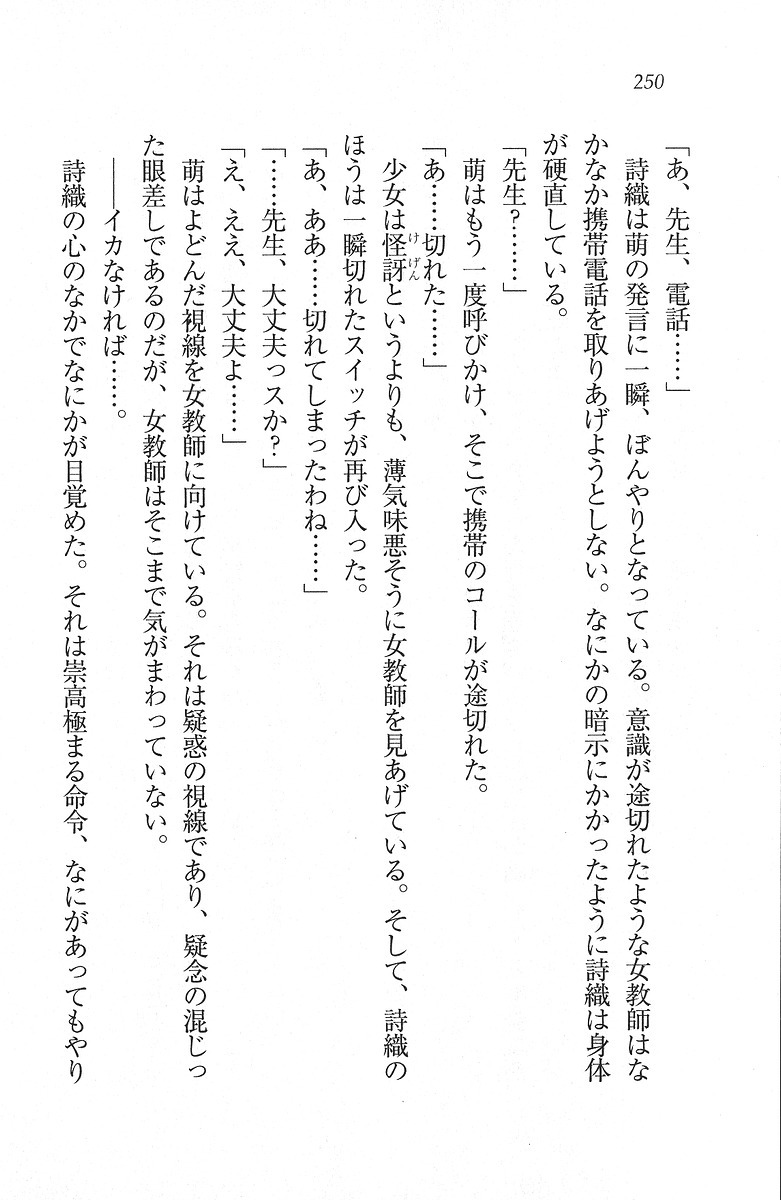 250
「あ、先生、電話……」
詩織は萌の発言に一瞬、ぼんやりとなっている。意識が途切れたような女教師はな
かなか携帯電話を取りあげようとしない。なにかの暗示にかかったように詩織は身体
が硬直している。
「先生？……」
萌はもう一度呼びかけ、そこで携帯のコールが途切れた。
「あ……切れた……」
少女は怪訝というよりも、薄気味悪そうに女教師を見あげている。そして、詩織の
ほうは一瞬切れたスイッチが再び入った。
「あ、ああ……切れてしまったわね……」
「……先生、大丈夫っスか？」
「え、ええ、大丈夫よ……」
萌はよどんだ視線を女教師に向けている。それは疑惑の視線であり、疑念の混じっ
た眼差しであるのだが、女教師はそこまで気がまわっていない。
――イカなければ……。
詩織の心のなかでなにかが目覚めた。それは崇高極まる命令、なにがあってもやり